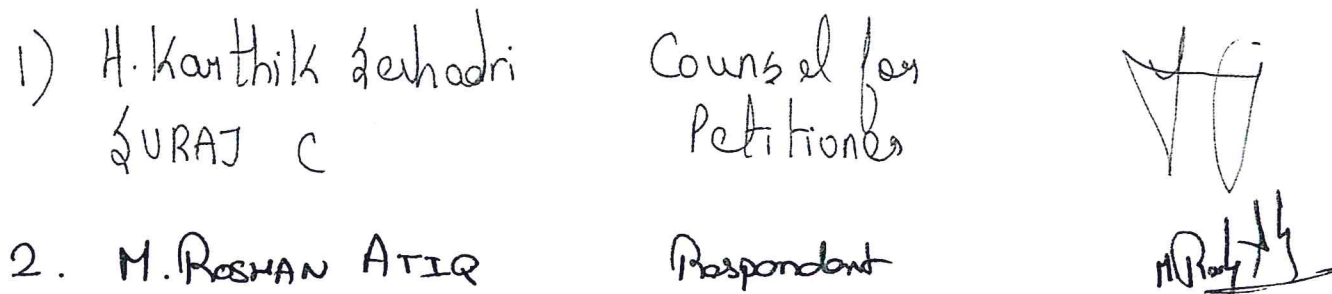 1) H. Karthik Seshadri Counsel for
SURAJ C Petitioner
2. M. ROSHAN ATIQ Respondent